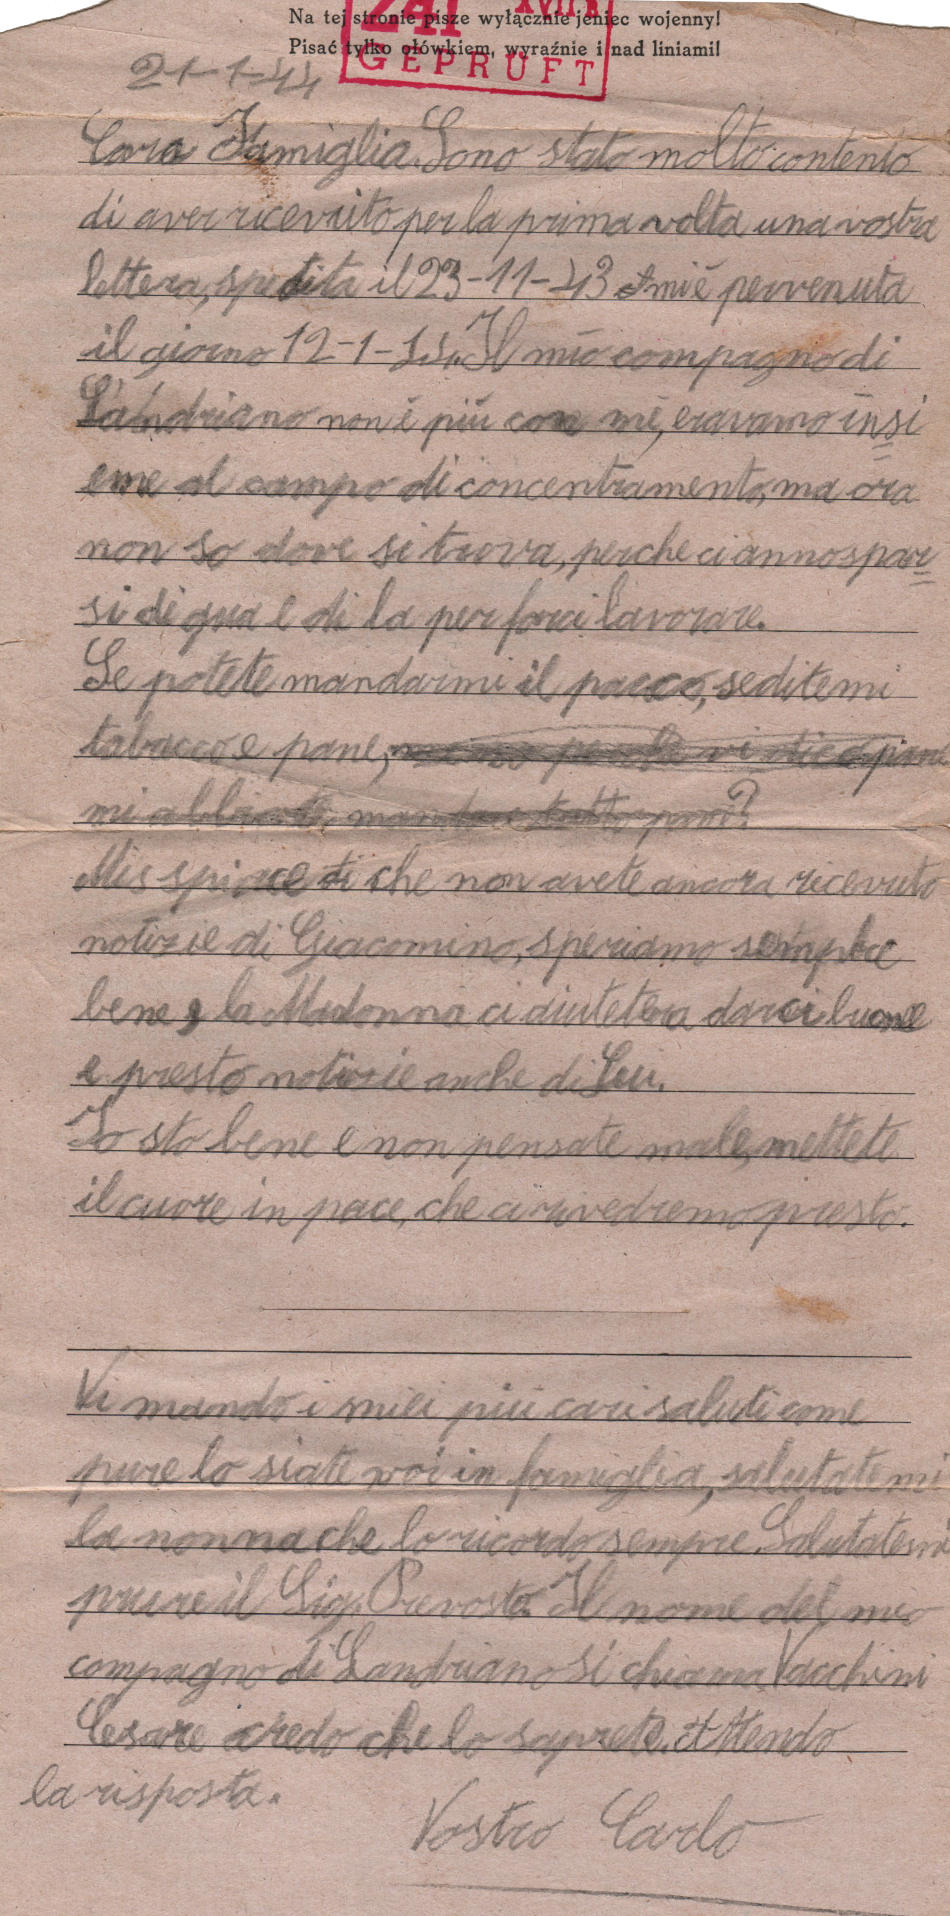 Na tej stronie pisze wyłącznie jeniec wojenny!
Pisać tylko ołówkiem, wyraźnie i nad liniami!
XVII B
GEPRÜFT
21-1-44
Cara Famiglia. Sono stato molto contento
di aver ricevuito per la prima volta una vostra
lettera, spedita il 23-11-43 e mi è pervenuta
il giorno 12-1-44. Il mio compagno di
Landriano non è più con mè, eravamo insi
eme al campo di concentramento, ma ora
non so dove si trova, perche ci anno spar
si di qua e di la per farci lavorare.
Se potete mandarmi il pacco, seditemi
tabacco e pane,
Mis spiace di che non avete ancora ricevuto
notizie di Giacomino, speriamo sempbre
bene, la Madonna ci aiutetera darci buone
e presto notizie anche di Lui.
Io sto bene e non pensate male, mettete
il cuore in pace, che ci rivedremo presto.
Vi mando i miei più cari saluti come
pure lo siate voi in famiglia, salutatemi
la nonna che lo ricordo sempre. Salutatemi
puure il Sig. Prevosto. Il nome del mio
compagno di Landriano si chiama Vacchini
Cesare credo che lo saprete. Attendo
la risposta.
Vostro Carlo